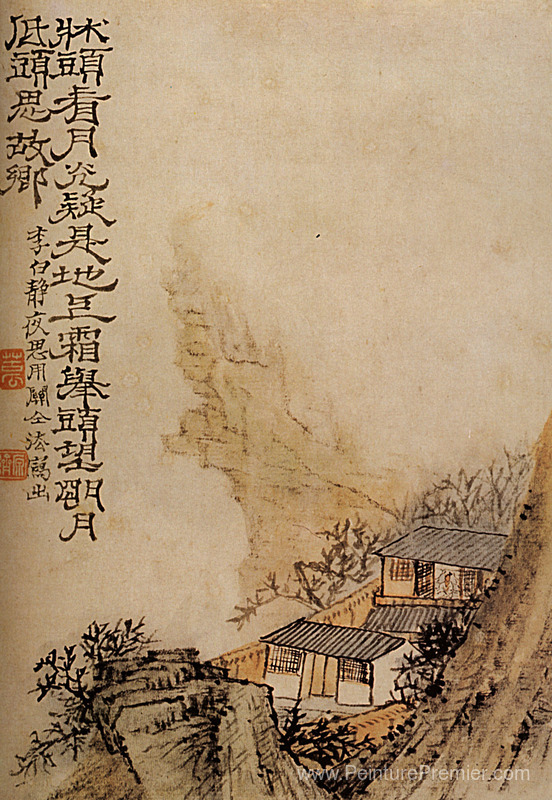 牀頭看月光疑是地上霜舉頭望朙月
低頭思故鄉
李白靜夜思用關仝法寫出
www.PeinturePremier.com